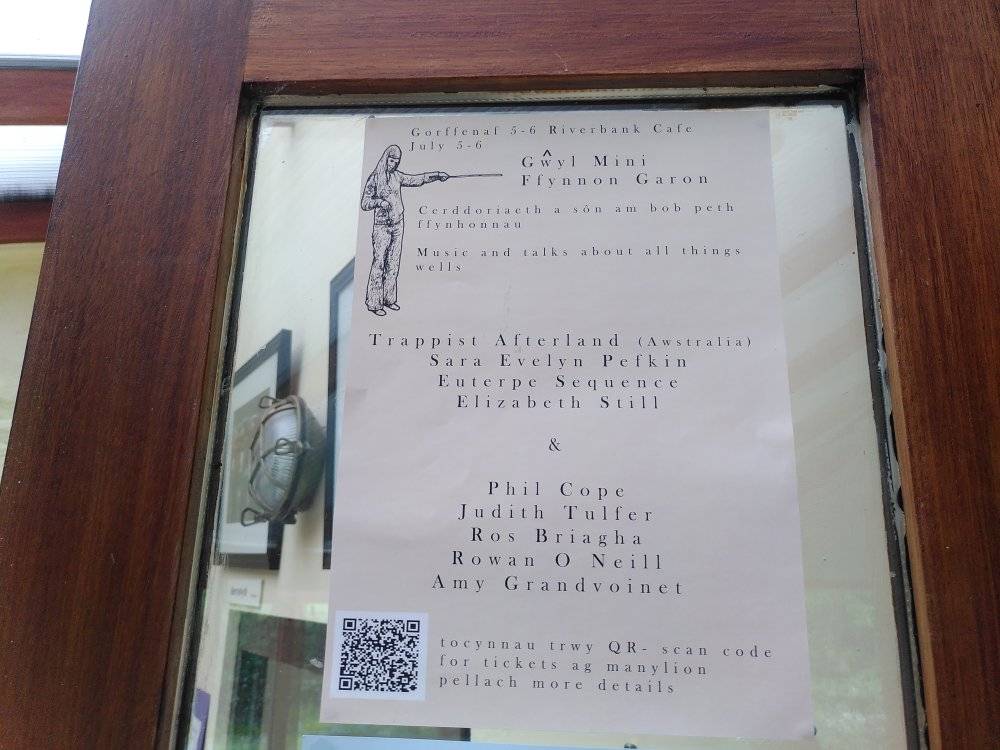 Gorffenaf 5-6 Riverbank Cafe
July 5-6
Gŵyl Mini
Ffynnon Garon
Cerddoriaeth a sôn am bob peth
ffynhonnau
Music and talks about all things
wells
Trappist Afterland (Awstralia)
Sara Evelyn Pefkin
Euterpe Sequence
Elizabeth Still
&
Phil Cope
Judith Tulfer
Ros Briagha
Rowan O Neill
Amy Grandvoinet
tocynnau trwy QR- scan code
for tickets ag manylion
pellach more details